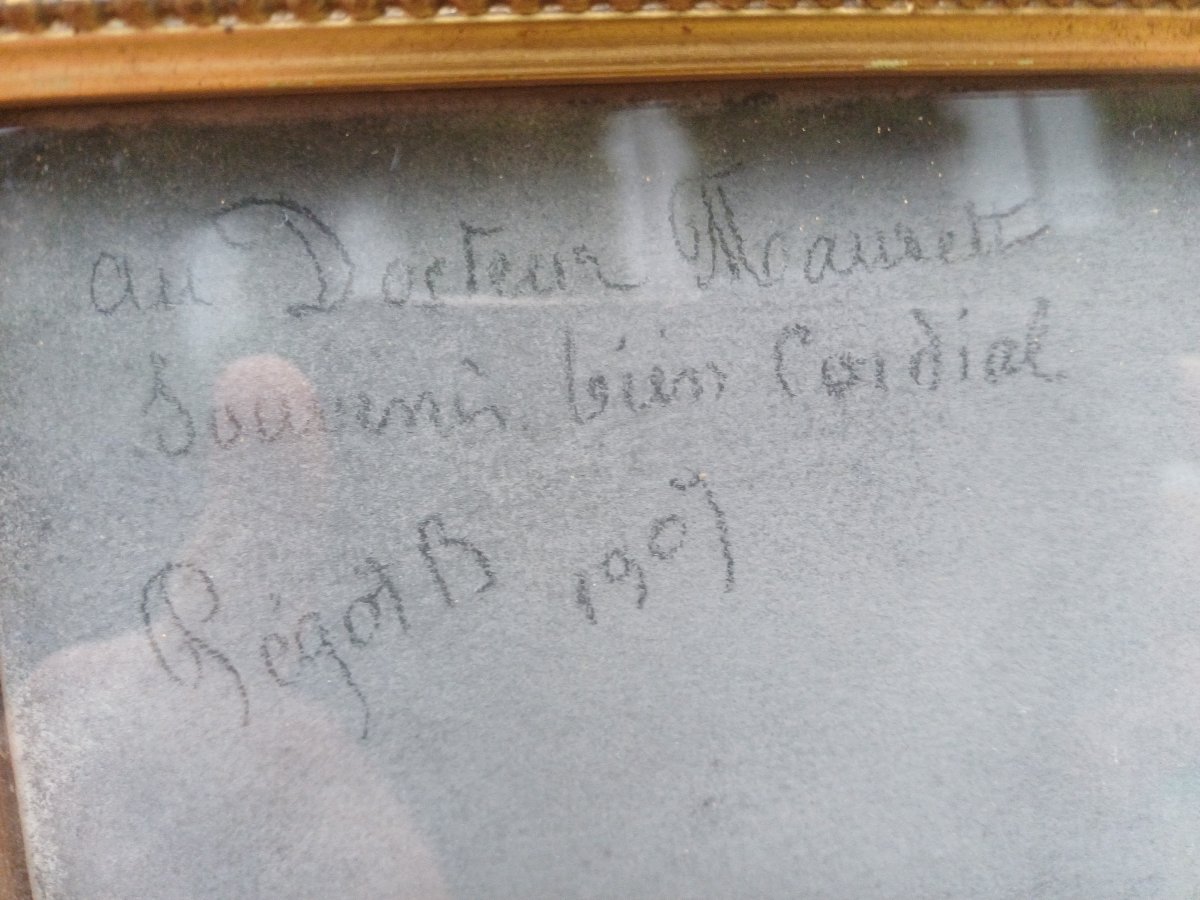 au Docteur Maurett
Souvenir bien Cordial
Régot B 1907